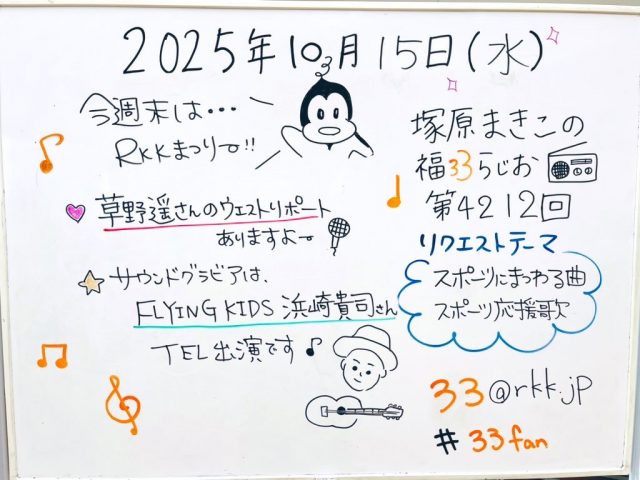 2025年10月15日(水)
今週末は・・・
RKKまつりー!!
草野遥さんのウエストリポート
ありますよー
サウンドグラビアは、
FLYING KIDS 浜崎貴司さん
TEL出演です♪
塚原まきこの
福33らじお
第4212回
リクエストテーマ
スポーツにまつわる曲
スポーツ応援歌
33@rkk.jp
#33fan